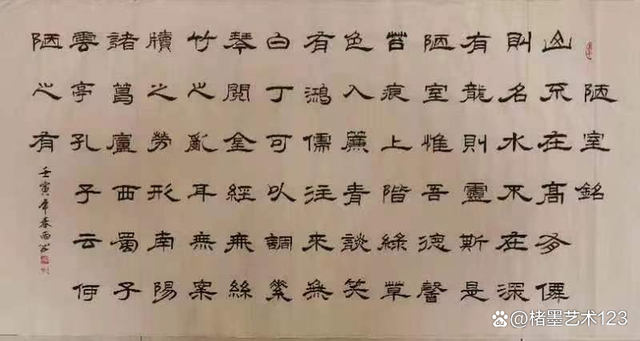 陋室銘
山不在高有僊
則名水不在深
有龍則靈斯是
陋室惟吾德馨
苔痕上階綠草
色入簾青談笑
有鴻儒往來無
白丁可以調素
琴閱金經無絲
竹之亂耳無案
牘之勞形南陽
諸葛廬西蜀子
雲亭孔子云何
陋之有
壬寅年春雨
@楮墨艺术123